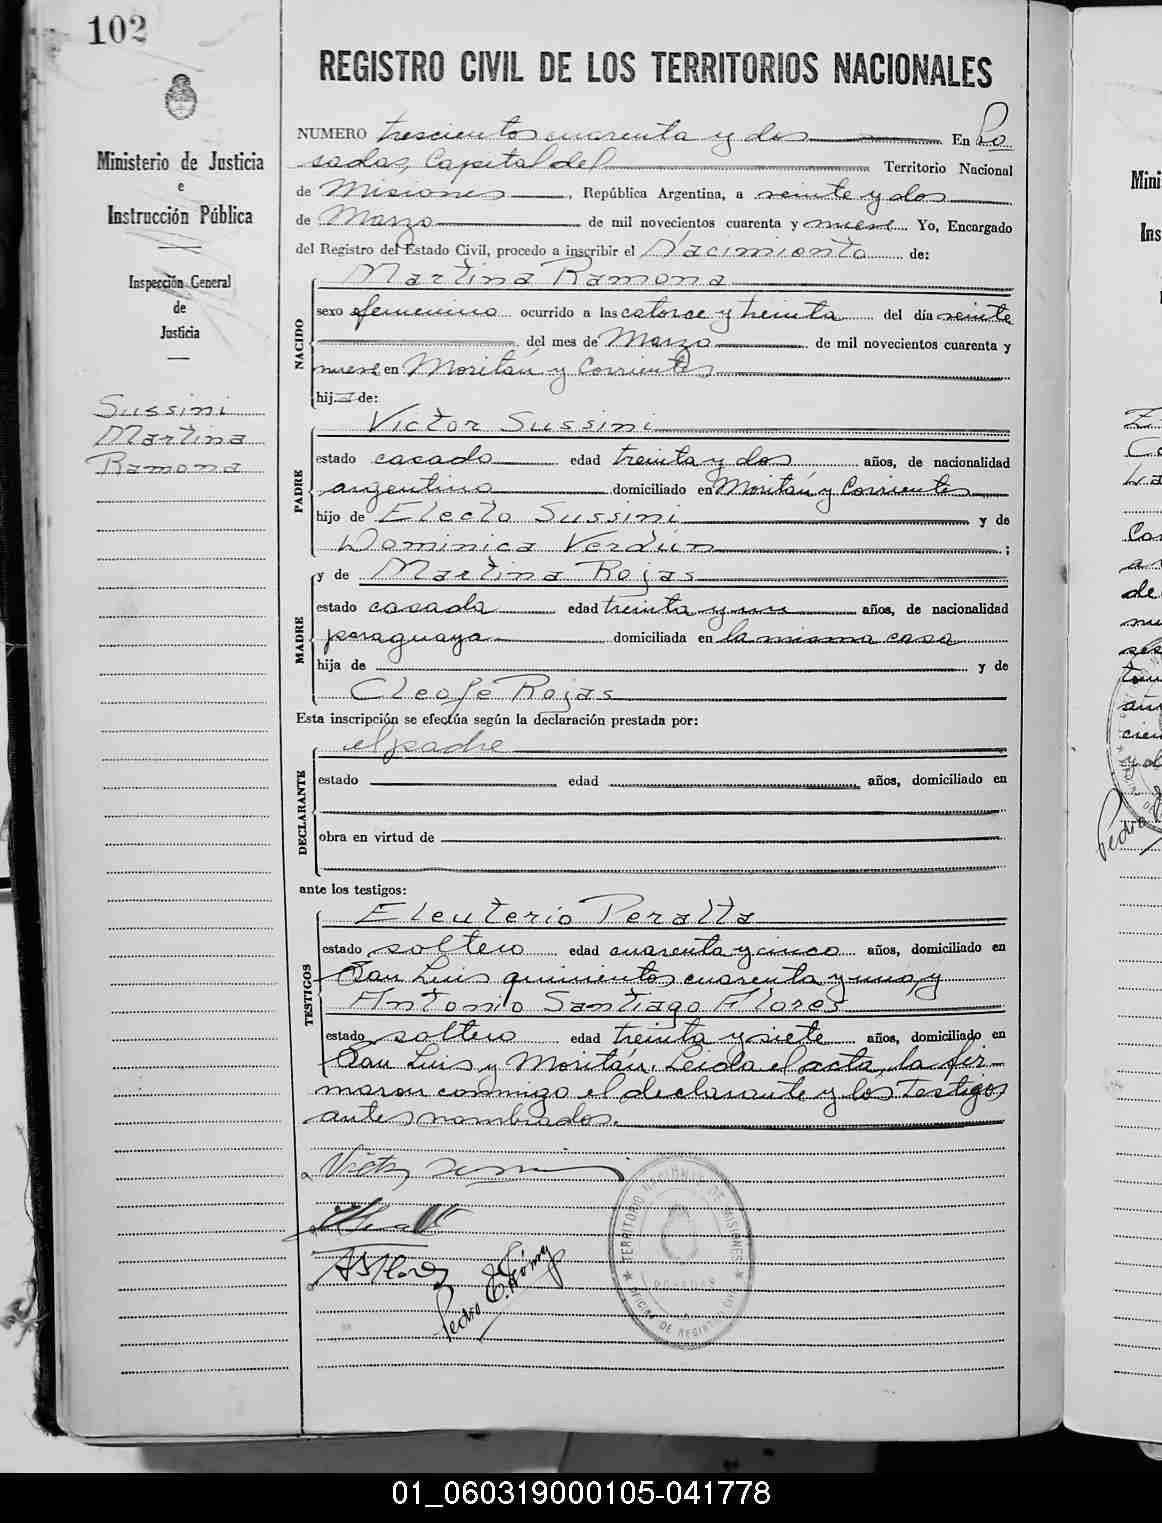 102
Ministerio de Justicia
e
Instrucción Pública
Inspección General
de
Justicia
Sussini
Martina
Ramona
REGISTRO CIVIL DE LOS TERRITORIOS NACIONALES
NUMERO trescientos cuarenta y dos En Po
sadas, Capital del Territorio Nacional
de Misiones, República Argentina, a veinte y dos
de Marzo de mil novecientos cuarenta y nueve Yo, Encargado
del Registro del Estado Civil, procedo a inscribir el Nacimiento de:
NACIDO
Martina Ramona
sexo femenino ocurrido a las catorce y treinta del día veinte
del mes de Marzo de mil novecientos cuarenta y
nueve en Moritán y Corrientes
hija de:
PADRE
Victor Sussini
estado casado edad treinta y dos años, de nacionalidad
argentino domiciliado en Moritán y Corrientes
hijo de Electo Sussini y de
Dominica Verdún ;
MADRE
y de Martina Rojas
estado casada edad treinta y un años, de nacionalidad
paraguaya domiciliada en la misma casa
hija de y de
Cleofe Rojas
Esta inscripción se efectúa según la declaración prestada por:
DECLARANTE
el padre
estado edad años, domiciliado en
obra en virtud de
ante los testigos:
TESTIGOS
Eleuterio Peralta
estado soltero edad cuarenta y cinco años, domiciliado en
San Luis quinientos cuarenta y uno, y
Antonio Santiago Flores
estado soltero edad treinta y siete años, domiciliado en
San Luis y Moritán. Leida el acta, la fir-
maron conmigo el declarante y los testigos
antes nombrados.
Victor Sussini
ASFlores
Pedro E.
TERRITORIO NACIONAL DE MISIONES
POSADAS
OFICINA DE REGISTRO CIVIL
Mini
Ins
01_060319000105-041778